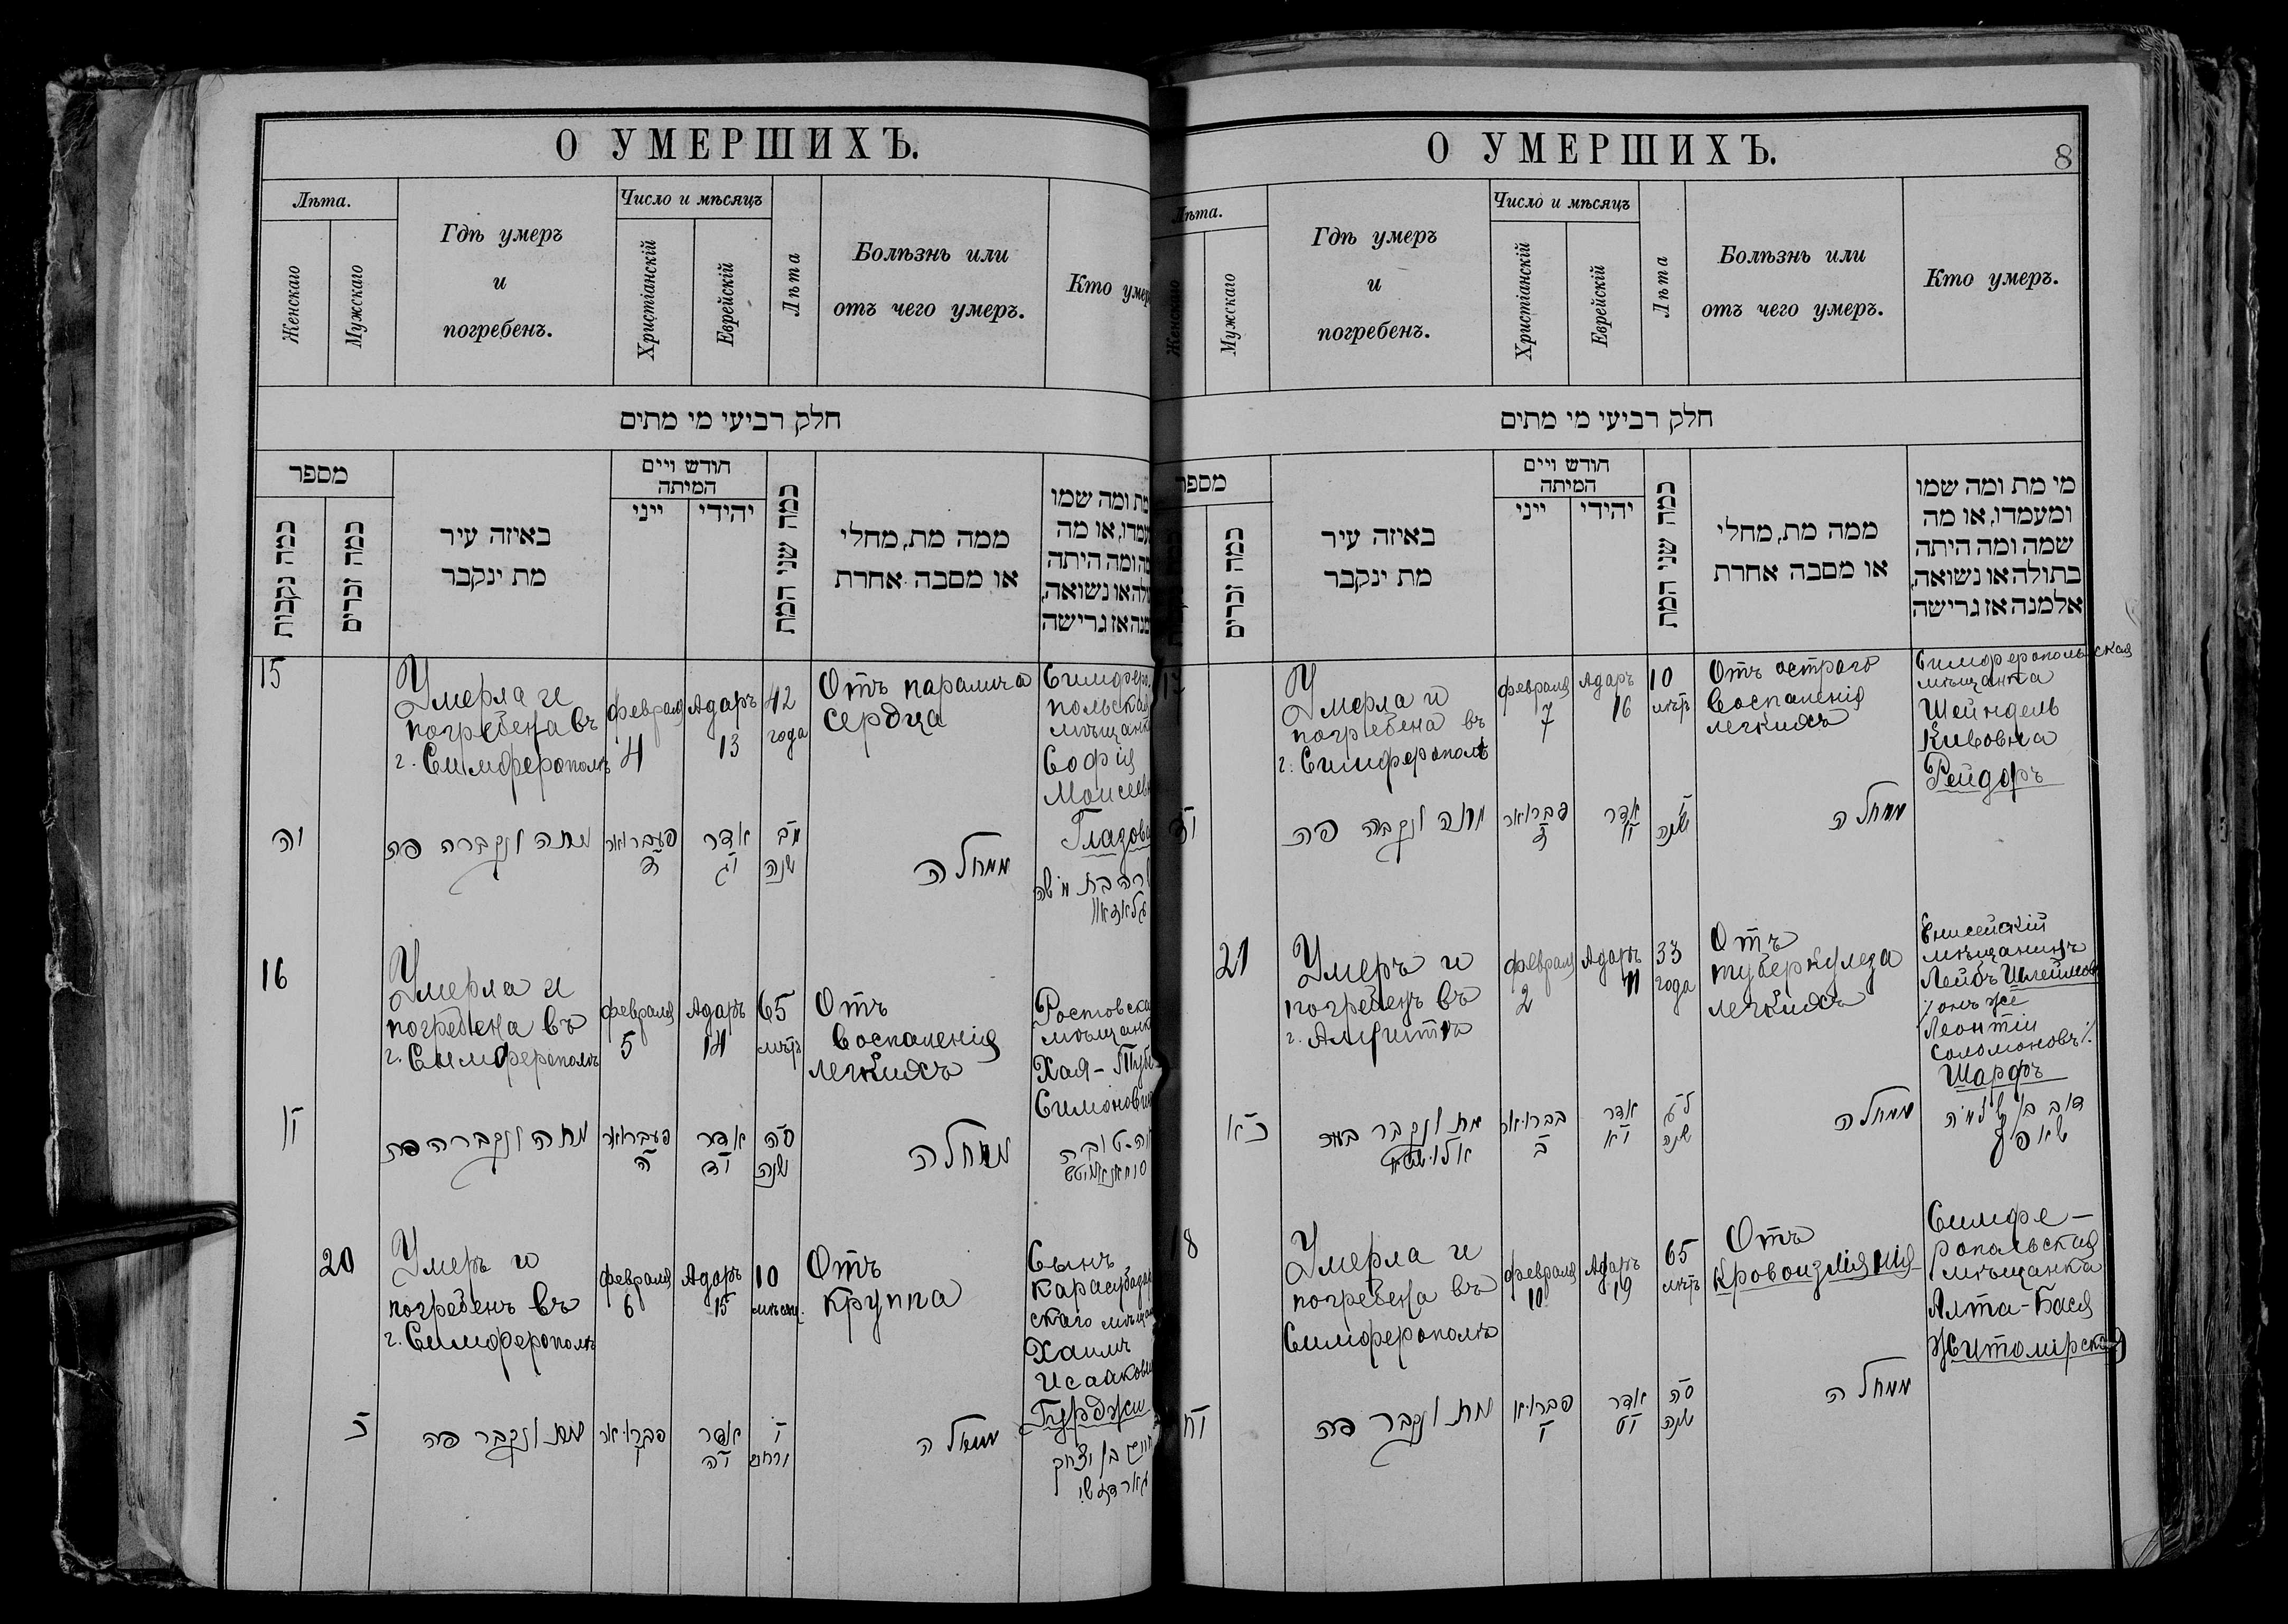 О УМЕРШИХЪ.
Лѣта.
Женскаго
Мужскаго
Гдѣ умеръ
и
погребенъ.
Число и мѣсяцъ
Христіанскій
Еврейскій
Лѣта
Болѣзнь или
отъ чего умеръ.
Кто умер
חלק רביעי מי מתים
מספר
כמה נקבות
כמה זכרים
באיזה עיר
מת ינקבר
חודש ויים
המיתה
ייני
יהודי
כמה שני המת
ממה מת, מחלי
או מסבה אחרת
מת ומה שמו
ומה היתה
או נשואה,
אז גרישה
15
Умерла и
погребена въ
г. Симферополѣ
февраля
4
Адаръ
13
42
года
Отъ паралича
сердца
Симферо-
польская
мѣщанк
Софія
Моисеев
Глазов
וה
מתה ונקברה פה
פעברואר
ד
אדר
יג
מב
שנה
ממחלה
שרה בת משה
16
Умерла и
погребена въ
г. Симферополѣ
февраля
5
Адаръ
14
65
лѣтъ
Отъ
воспаленія
легкихъ
Ростовска
мѣщанк
Хая-Туб
Симонов
מתה ונקברה פה
פעברואר
ה
אדר
יד
סה
שנה
מחלה
20
Умеръ и
погребенъ въ
г. Симферополѣ
февраля
6
Адаръ
15
10
мѣсяц.
Отъ
крупа
Сынъ
Карасубазар
скаго мѣщан
Хаимъ
Исааков
Гурджи
כ
מת ונקבר פה
פברואר
ו
אדר
יה
י
ירחים
ממחלה
חיים בן יצחק
גורדזשי
О УМЕРШИХЪ.
8
Лѣта.
Женскаго
Мужскаго
Гдѣ умеръ
и
погребенъ.
Число и мѣсяцъ
Христіанскій
Еврейскій
Лѣта
Болѣзнь или
отъ чего умеръ.
Кто умеръ.
חלק רביעי מי מתים
מספר
כמה זכרים
באיזה עיר
מת ינקבר
חודש ויים
המיתה
ייני
יהודי
כמה שני המת
ממה מת, מחלי
או מסבה אחרת
מי מת ומה שמו
ומעמדו, או מה
שמה ומה היתה
בתולה או נשואה,
אלמנה אז גרישה
17
Умерла и
погребена въ
г. Симферополѣ
февраля
7
Адаръ
16
10
лѣтъ
Отъ остраго
воспаленія
легкихъ
Симферопольская
мѣщанка
Шейндель
Кивовна
Рейдоръ
מתה ונקברה פה
פברואר
ז
אדר
יו
י
שנה
ממחלה
21
Умеръ и
погребенъ въ
г. Алуштѣ
февраля
2
Адаръ
11
33
года
Отъ
туберкулеза
легкихъ
Енисейскій
мѣщанинъ
Лейбъ Шлеймов
/онъ же
Леонтій
Соломоновъ/
Шарфъ
כא
מת ונקבר בעיר
אלושטא
פברואר
ב
אדר
יא
לג
שנה
ממחלה
לוב בן שלמה
שארף
18
Умерла и
погребена въ
Симферополѣ
февраля
10
Адаръ
19
65
лѣтъ
Отъ
кровоизліянія
Симфе-
ропольская
мѣщанка
Алта-Бася
Житомірская
יח
מת ונקבר פה
פברואר
י
אדר
יט
סה
שנה
ממחלה